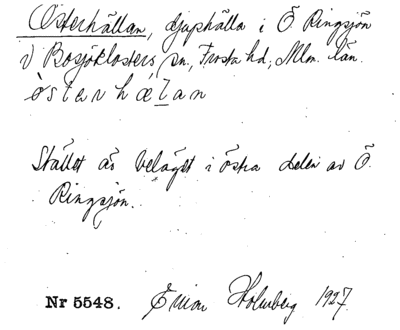 Österhällan, djuphålla i Ö Ringsjön
V Bosjöklosters sn., Frosta hd., Mlm. län.
ò̀stərhælan
Stället är beläget i östra delen av Ö.
Ringsjön.
Nr 5548. Holmberg 1927